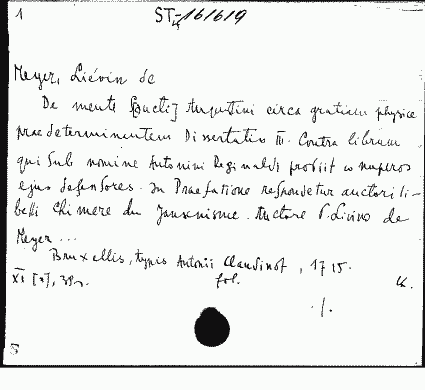 1
ST 161619
Meyer, Liévin de
De mente S[ancti] Augustini circa gratiam physice
praedeterminantem Dissertatio III. Contra librum
qui sub nomine Antonini Reginaldi prodiit et nuperos
ejus defensores. In Praefatione respondetur auctori li-
belli Chimere du Jansenisme. Auctore P. Livino de
Meyer ...
Bruxellis, typis Antonii Claudinot, 1715.
fol.